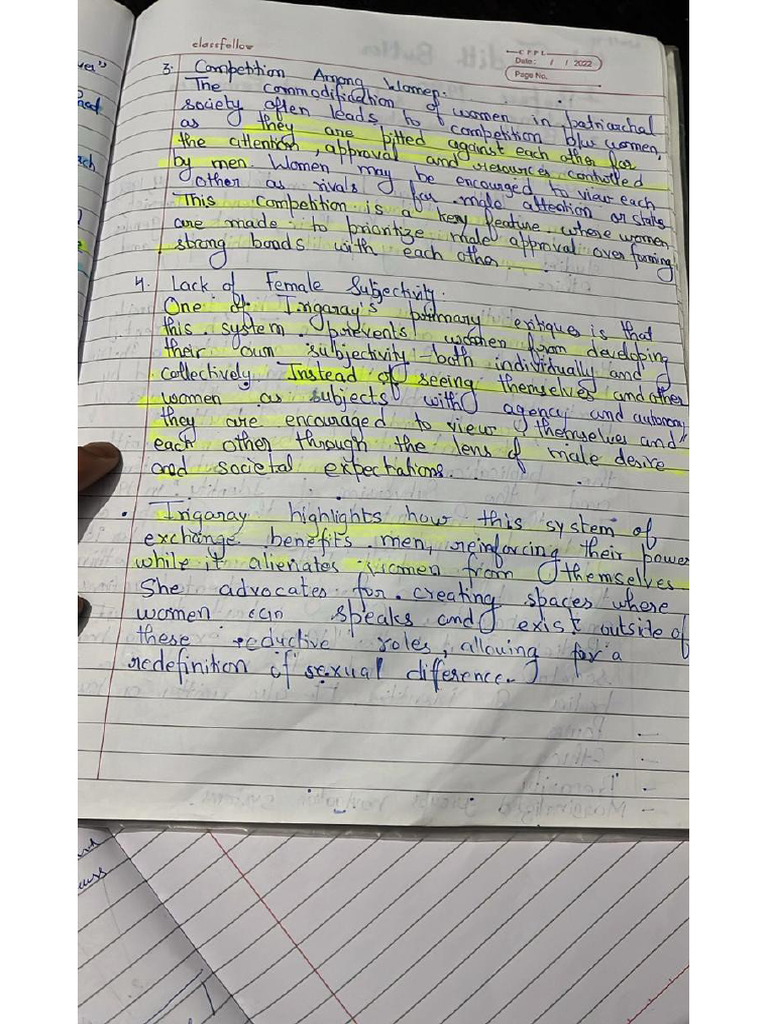 classfellow
CPPL
Date: / / 2022
Page No.
3. Competition Among Women.
The commodification of women in patriarchal
society often leads to competition b/w women,
as they are pitted against each other for
the attention, approval and resources controlled
by men. Women may be encouraged to view each
other as rivals for male attention or status
This competition is a key feature where women
are made to prioritize male approval over forming
strong bonds with each other.
4. Lack of Female Subjectivity.
One of Irigaray's primary critiques is that
this system prevents women from developing
their own subjectivity - both individually and
collectively. Instead of seeing themselves and other
women as subjects with agency and autonomy
they are encouraged to view themselves and
each other through the lens of male desire
and societal expectations.
• Irigaray highlights how this system of
exchange benefits men, reinforcing their power
while it alienates women from themselves
She advocates for creating spaces where
women can speaks and exist outside of
these reductive roles, allowing for a
redefinition of sexual difference.